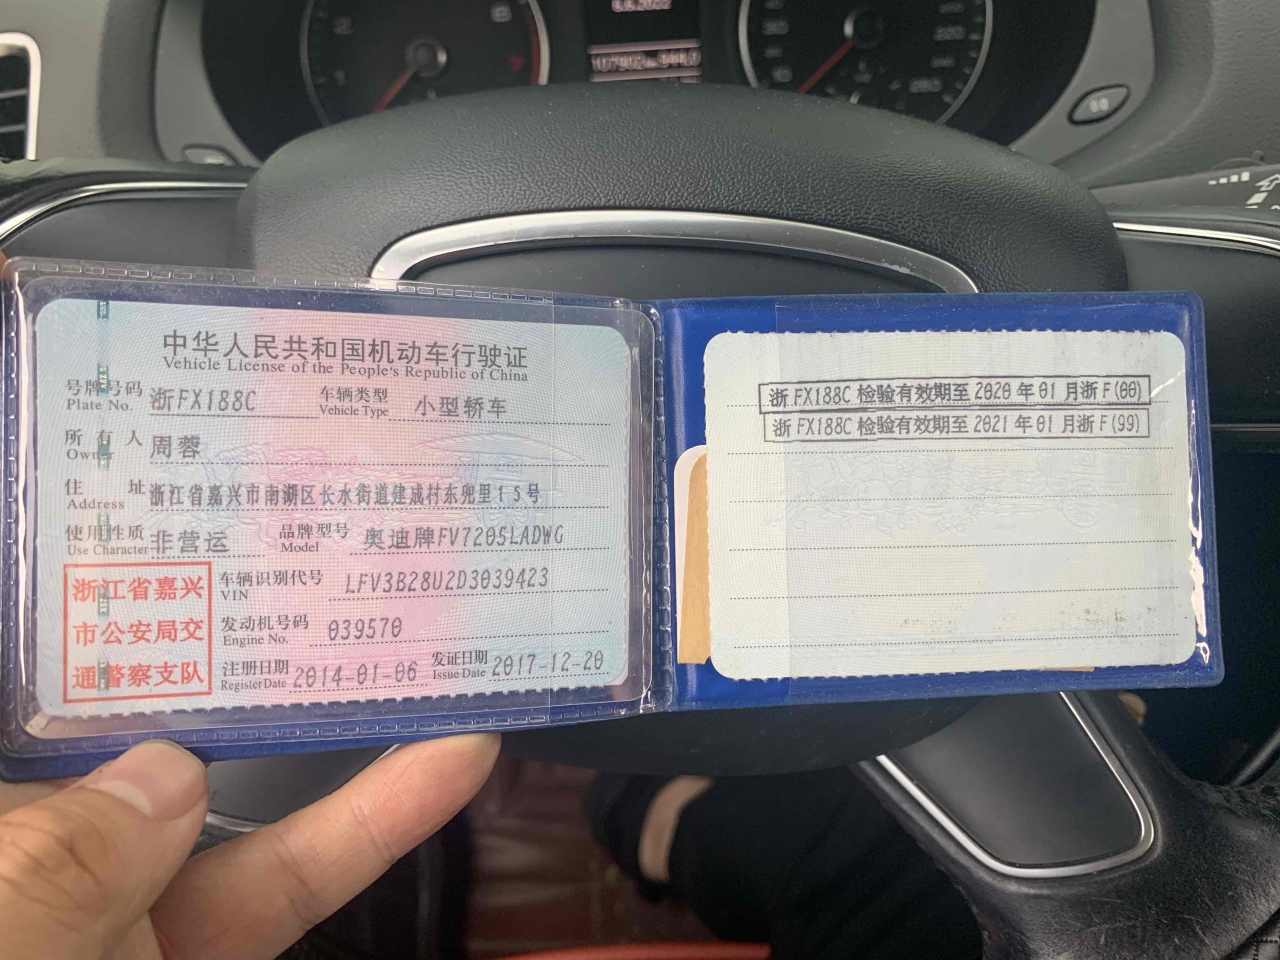 中华人民共和国机动车行驶证
Vehicle License of the People's Republic of China
号牌号码 浙FX188C 车辆类型 小型轿车
Plate No. Vehicle Type
所有人 周蓉
Owner
住址 浙江省嘉兴市南湖区长水街道建成村东兜里15号
Address
使用性质 非营运 品牌型号 奥迪牌FV7205LADWG
Use Character Model
浙江省嘉兴
市公安局交
通警察支队
车辆识别代号 LFV3B28U2D3039423
VIN
发动机号码 039570
Engine No.
注册日期 2014-01-06 发证日期 2017-12-20
Register Date Issue Date
浙FX188C 检验有效期至 2020 年 01 月浙 F(00)
浙FX188C 检验有效期至 2021 年 01 月浙 F(99)